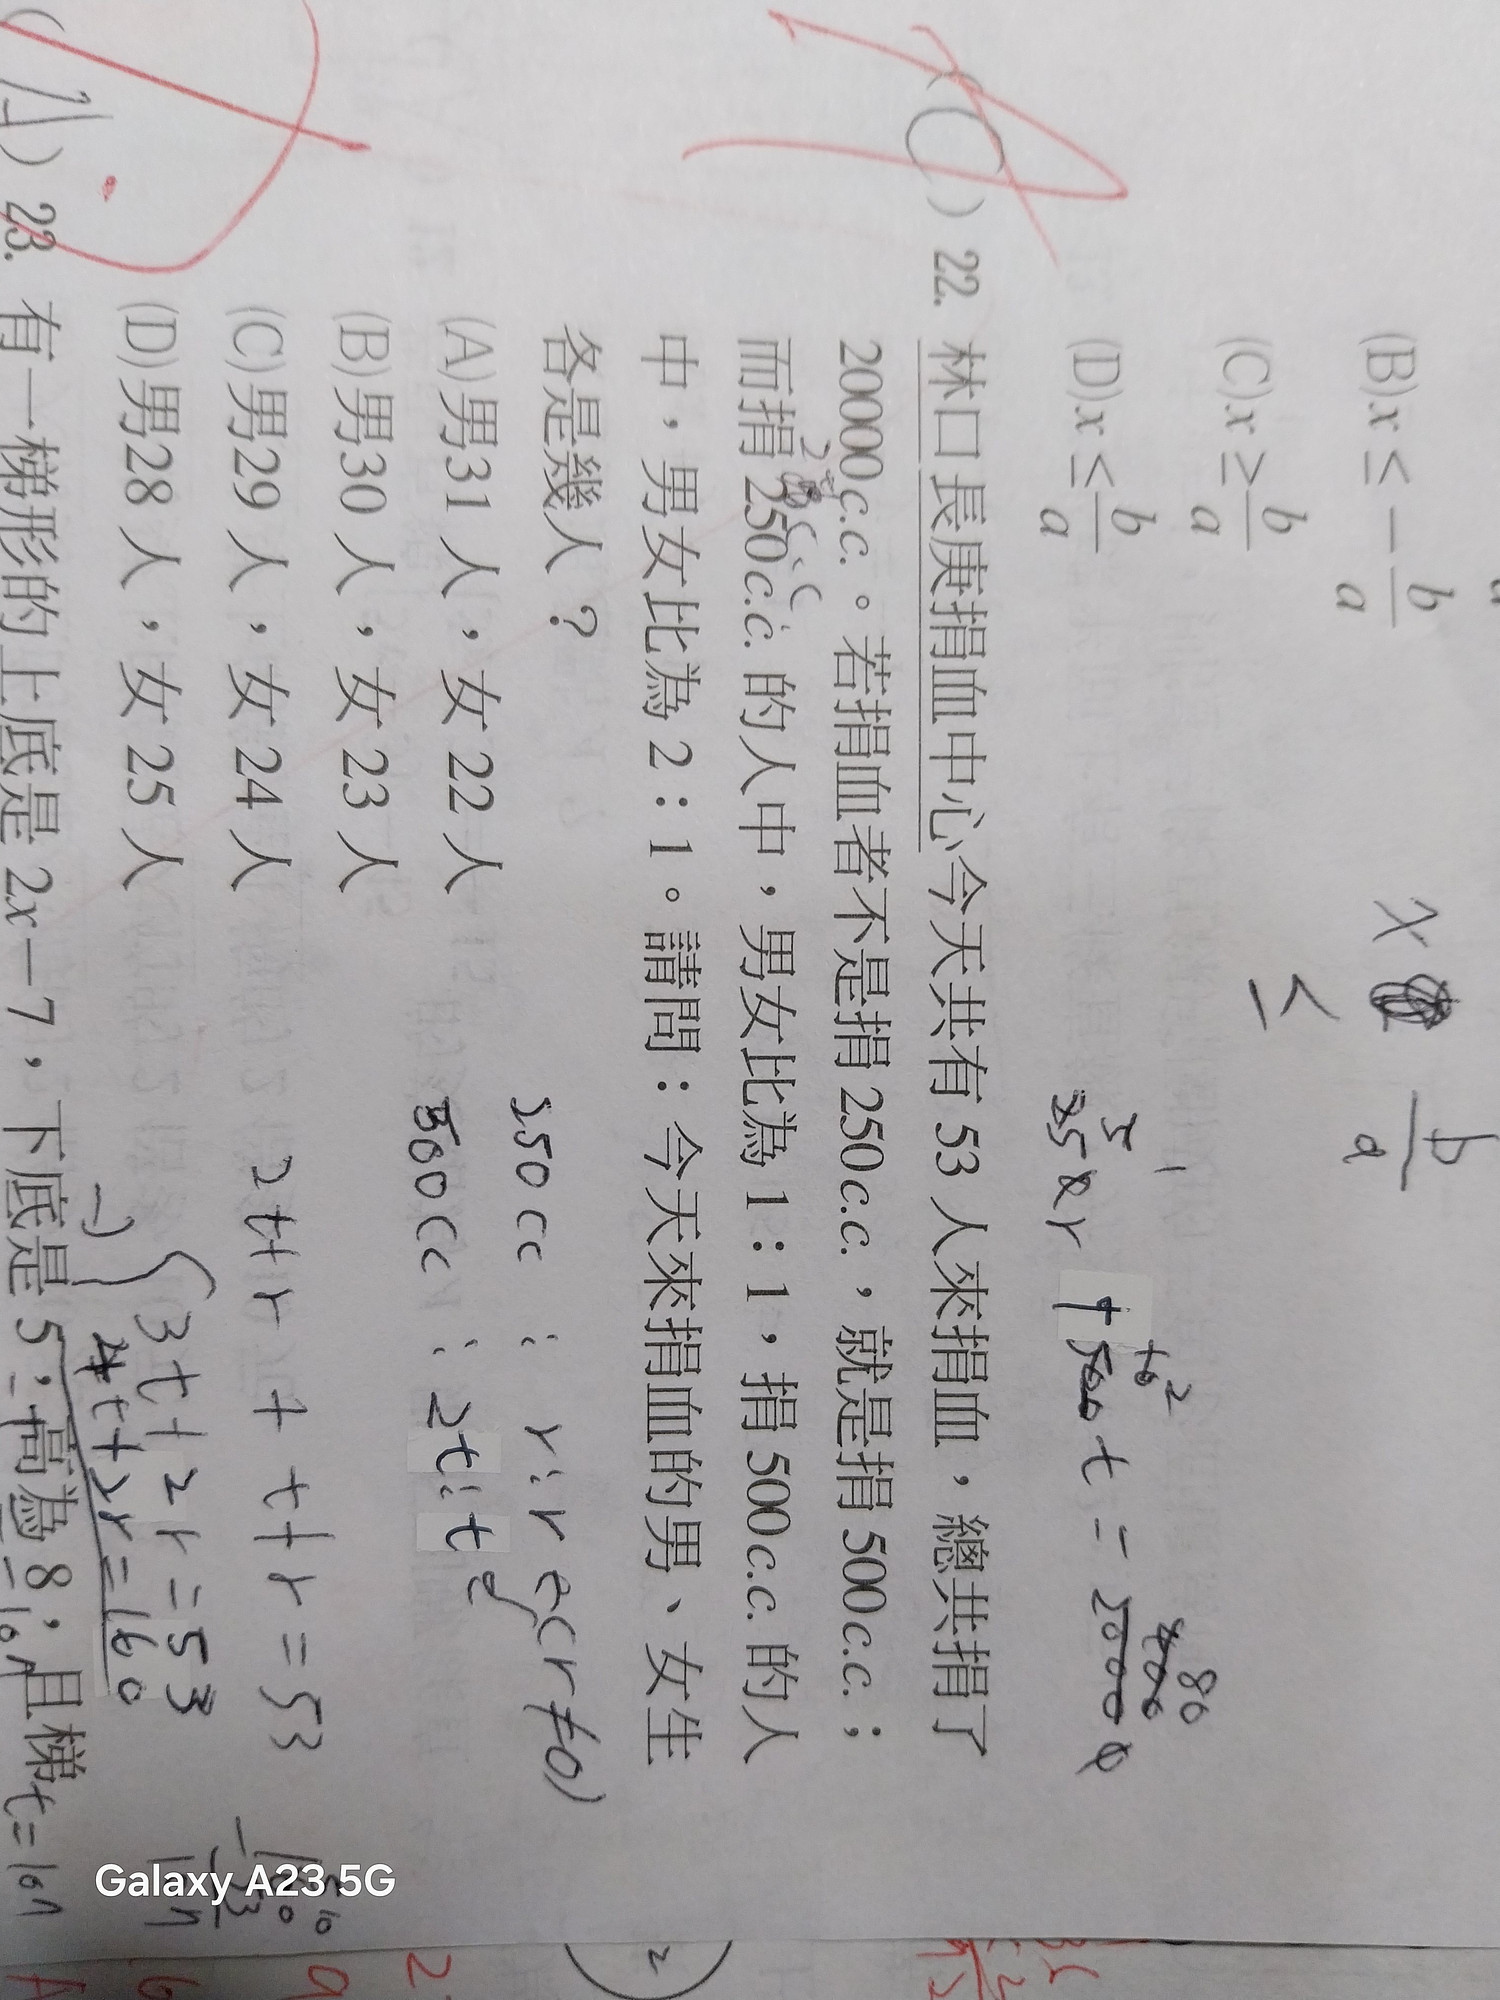 (B)x ≤ −b/a
(C)x ≥ b/a
(D)x ≤ b/a
x
≤
b/a
(C) 22. 林口長庚捐血中心今天共有 53 人來捐血，總共捐了
20000c.c.。若捐血者不是捐 250c.c.，就是捐 500c.c.；
而捐 250c.c. 的人中，男女比為 1：1，捐 500c.c. 的人
中，男女比為 2：1。請問：今天來捐血的男、女生
各是幾人？
(A)男31 人，女 22 人
(B)男30 人，女 23 人
(C)男29 人，女 24 人
(D)男28 人，女 25 人
250cc : r:r (r≠0)
500cc : 2t:t
2t+r + t+r = 53
3t+2r=53
4t+2r=160
23. 有一梯形的上底是 2x－7，下底是 5，高為 8，且梯
t=107
Galaxy A23 5G